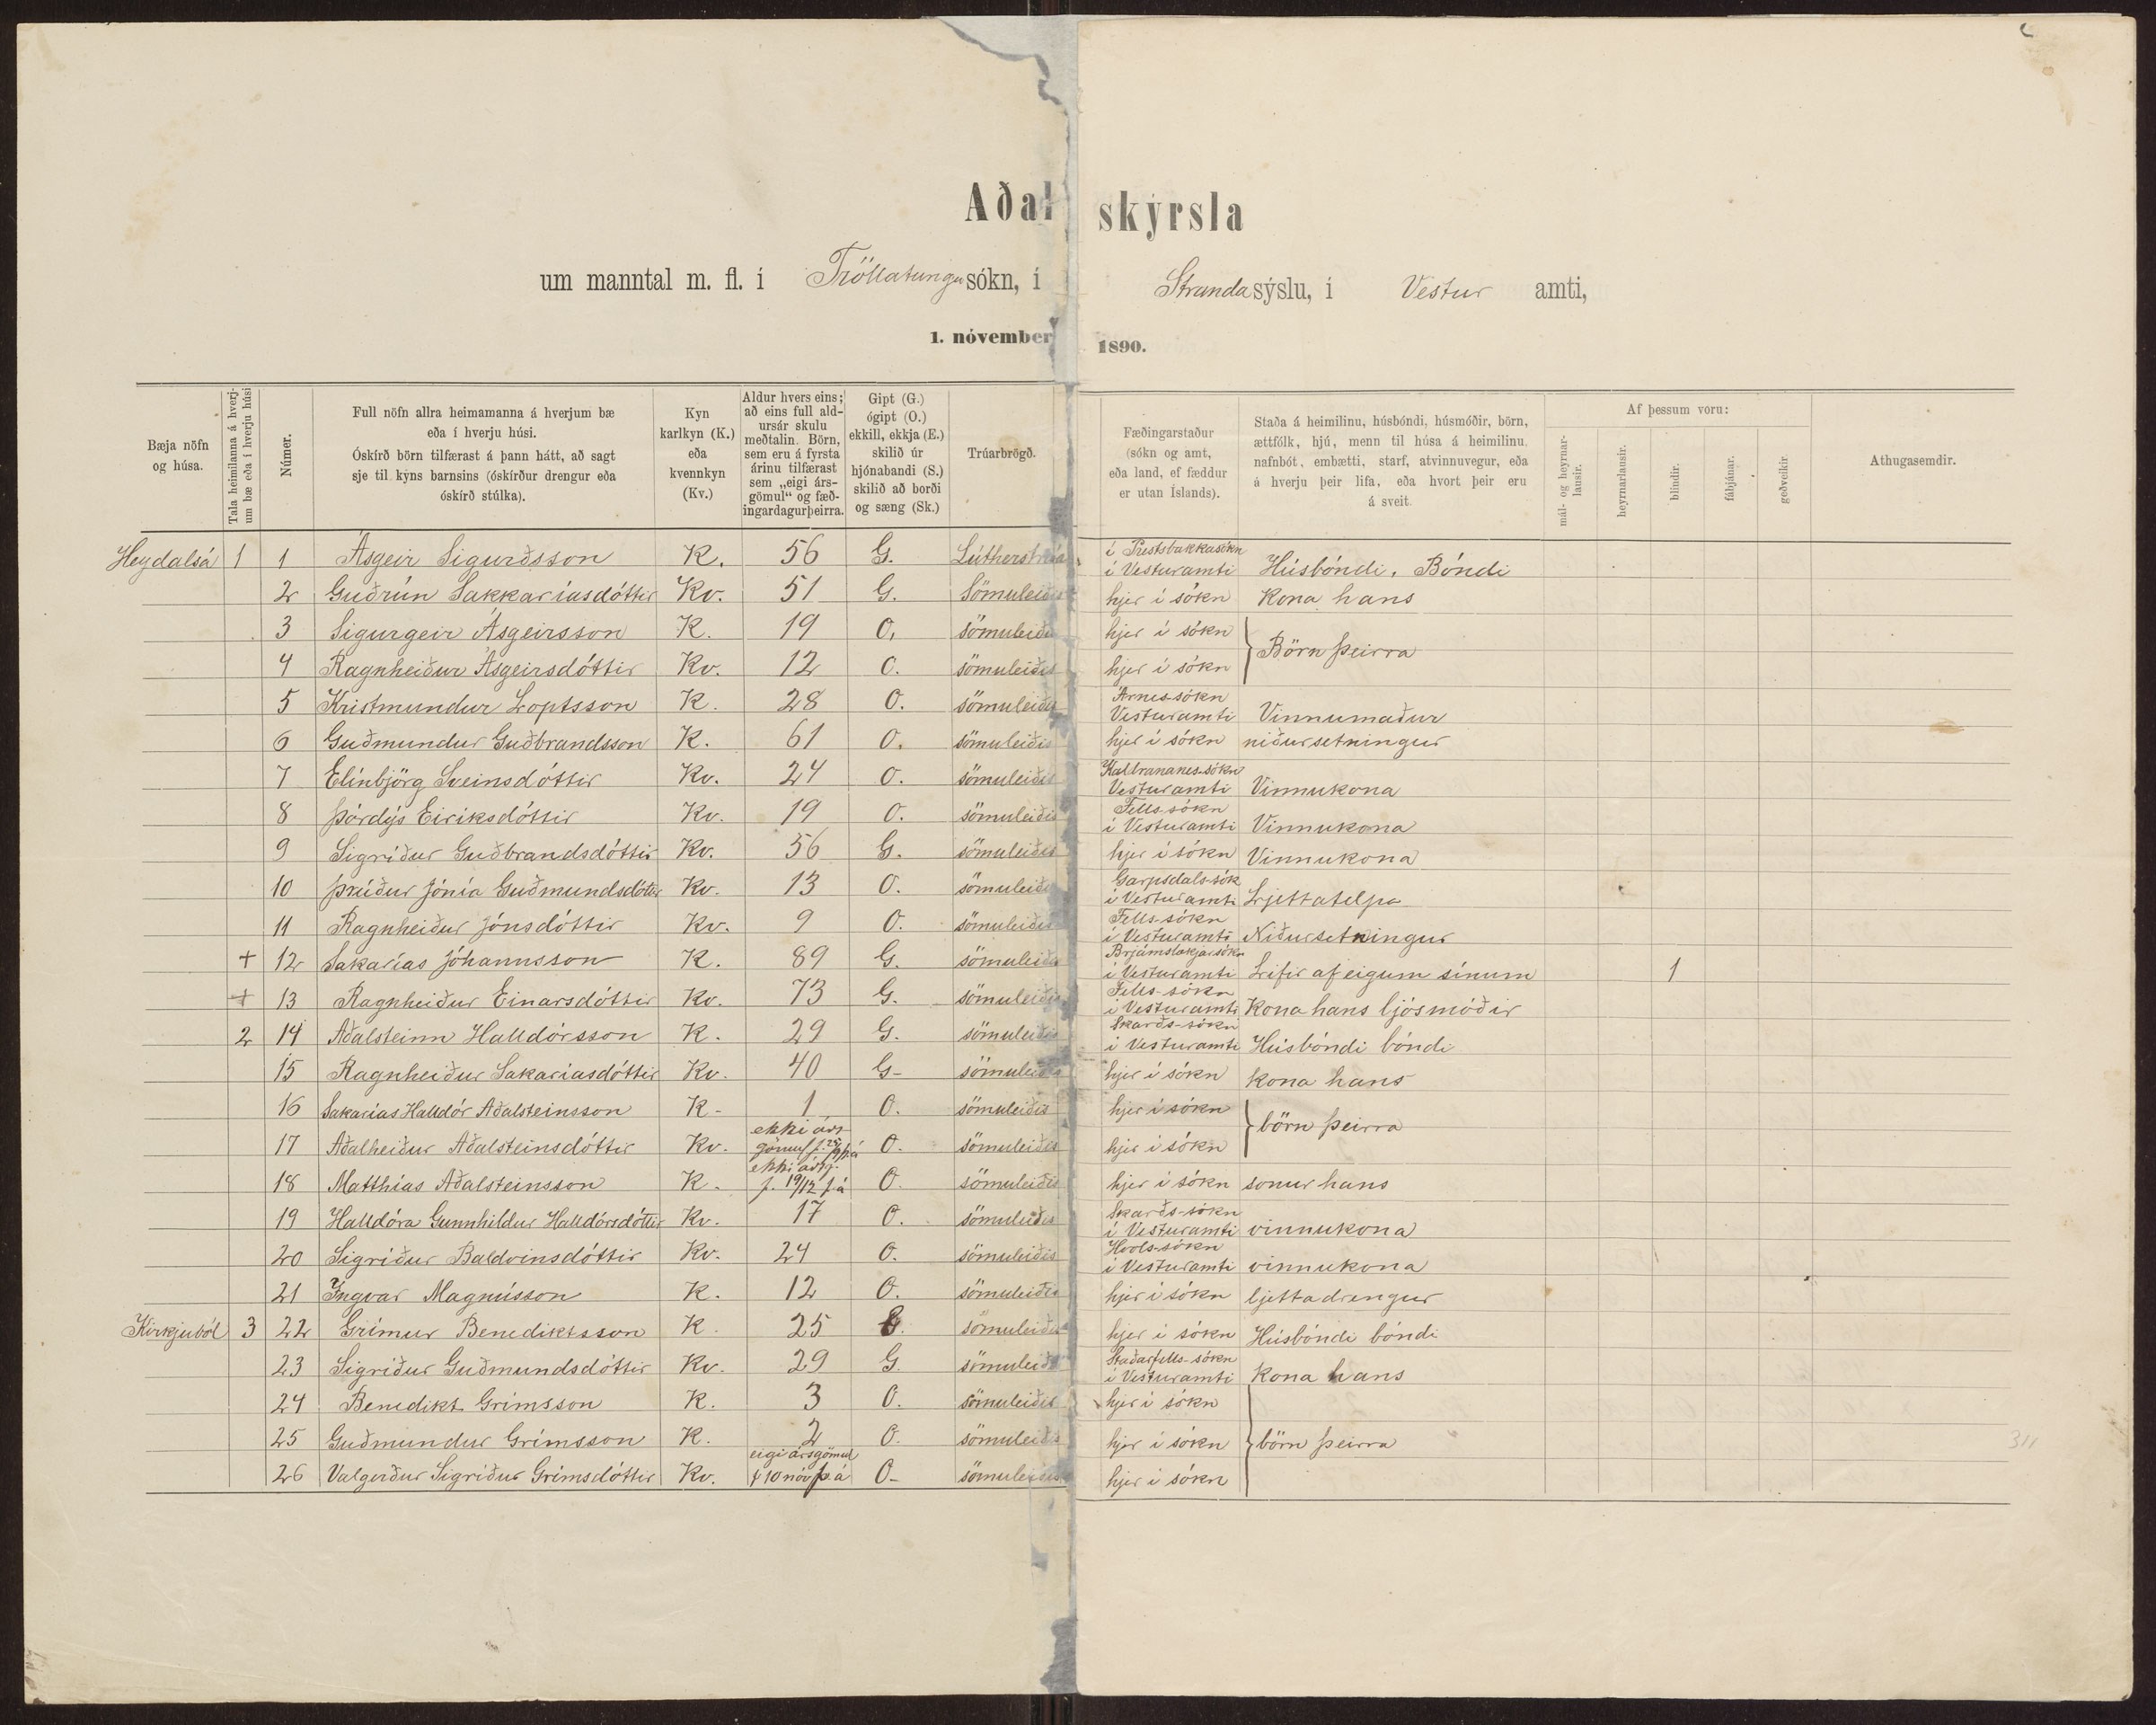 Aðalskýrsla
um manntal m. fl. í Tröllatungu sókn, í Stranda sýslu, í Vestur amti,
1. nóvember 1890.
Bæja nöfn og húsa. | Tala heimilanna á hverjum bæ eða í hverju húsi | Númer. | Full nöfn allra heimamanna á hverjum bæ eða í hverju húsi. Óskírð börn tilfærast á þann hátt, að sagt sje til kyns barnsins (óskírður drengur eða óskírð stúlka). | Kyn karlkyn (K.) eða kvennkyn (Kv.) | Aldur hvers eins; að eins full aldursár skulu meðtalin. Börn, sem eru á fyrsta árinu tilfærast sem „eigi ársgömul“ og fæðingardagur þeirra. | Gipt (G.) ógipt (O.) ekkill, ekkja (E.) skilið úr hjónabandi (S.) skilið að borði og sæng (Sk.) | Trúarbrögð. | Fæðingarstaður (sókn og amt, eða land, ef fæddur er utan Íslands). | Staða á heimilinu, húsbóndi, húsmóðir, börn, ættfólk, hjú, menn til húsa á heimilinu, nafnbót, embætti, starf, atvinnuvegur, eða á hverju þeir lifa, eða hvort þeir eru á sveit. | Af þessum voru: mál- og heyrnarlausir. | heyrnarlausir. | blindir. | fábjánar. | geðveikir | Athugasemdir.
Heydalsá 1 1 Ásgeir Sigurðsson K. 56 G. Lútherstrúar í Prestsbakkasókn í Vesturamti Húsbóndi, Bóndi
2 Guðrún Sakkaríasdóttir Kv. 51 G. Sömuleiðis hjer í sókn Kona hans
3 Sigurgeir Ásgeirsson K. 19 O. sömuleiðis hjer í sókn } Börn þeirra
4 Ragnheiður Ásgeirsdóttir Kv. 12 O. sömuleiðis hjer í sókn
5 Kristmundur Loptsson K. 28 O. sömuleiðis Árnes-sókn Vesturamti Vinnumaður
6 Guðmundur Guðbrandsson K. 61 O. sömuleiðis hjer í sókn niðursetningur
7 Elínbjörg Sveinsdóttir Kv. 24 O. sömuleiðis Kaldrananes-sókn Vesturamti Vinnukona
8 Þórdýs Eiriksdóttir Kv. 19 O. sömuleiðis Fells-sókn í Vesturamti Vinnukona
9 Sigríður Guðbrandsdóttir Kv. 56 G. sömuleiðis hjer í sókn Vinnukona
10 Þrúður Jónía Guðmundsdóttir Kv. 13 O. sömuleiðis Garpsdals-sók í Vesturamti Ljettatelpa
11 Ragnheiður Jónsdóttir Kv. 9 O. sömuleiðis Fells-sókn í Vesturamti Niðursetningur
+ 12 Sakarías Jóhannsson K. 89 G. sömuleiðis Brjámslækjarsókn í Vesturamti Lifir af eigum sínum 1
+ 13 Ragnheiður Einarsdóttir Kv. 73 G. sömuleiðis Fells-sókn í Vesturamti Kona hans ljósmóðir
2 14 Aðalsteinn Halldórsson K. 29 G. sömuleiðis Skarðs-sókn í Vesturamti Húsbóndi bóndi
15 Ragnheiður Sakaríasdóttir Kv. 40 G- sömuleiðis hjer í sókn Kona hans
16 Sakarías Halldór Aðalsteinsson K- 1 O. sömuleiðis hjer í sókn } börn þeirra
17 Aðalheiður Aðalsteinsdóttir Kv. ekki ársgömul O. sömuleiðis hjer í sókn
18 Matthías Aðalsteinsson K. ekki árg. f. 19/12 f.á O. sömuleiðis hjer í sókn sonur hans
19 Halldóra Gunnhildur Halldórsdóttir Kv. 17 O. sömuleiðis Skarðs-sókn í Vesturamti vinnukona
20 Sigríður Baldvinsdóttir Kv. 24 O. sömuleiðis Hvols-sókn í Vesturamti vinnukona
21 Ingvar Magnússon K. 12 O. sömuleiðis hjer í sókn ljettadrengur
Kirkjuból 3 22 Grímur Benediktsson K. 25 G. sömuleiðis hjer í sókn Húsbóndi bóndi
23 Sigríður Guðmundsdóttir Kv. 29 G. sömuleiðis Staðarfells-sókn í Vesturamti Kona hans
24 Benedikt Grímsson K. 3 O. sömuleiðis hjer í sókn
25 Guðmundur Grímsson K. 2 O. sömuleiðis hjer í sókn } börn þeirra
26 Valgerður Sigríður Grímsdóttir Kv. eigi ársgömul f 10 nóv f.á O- sömuleiðis hjer í sókn
311